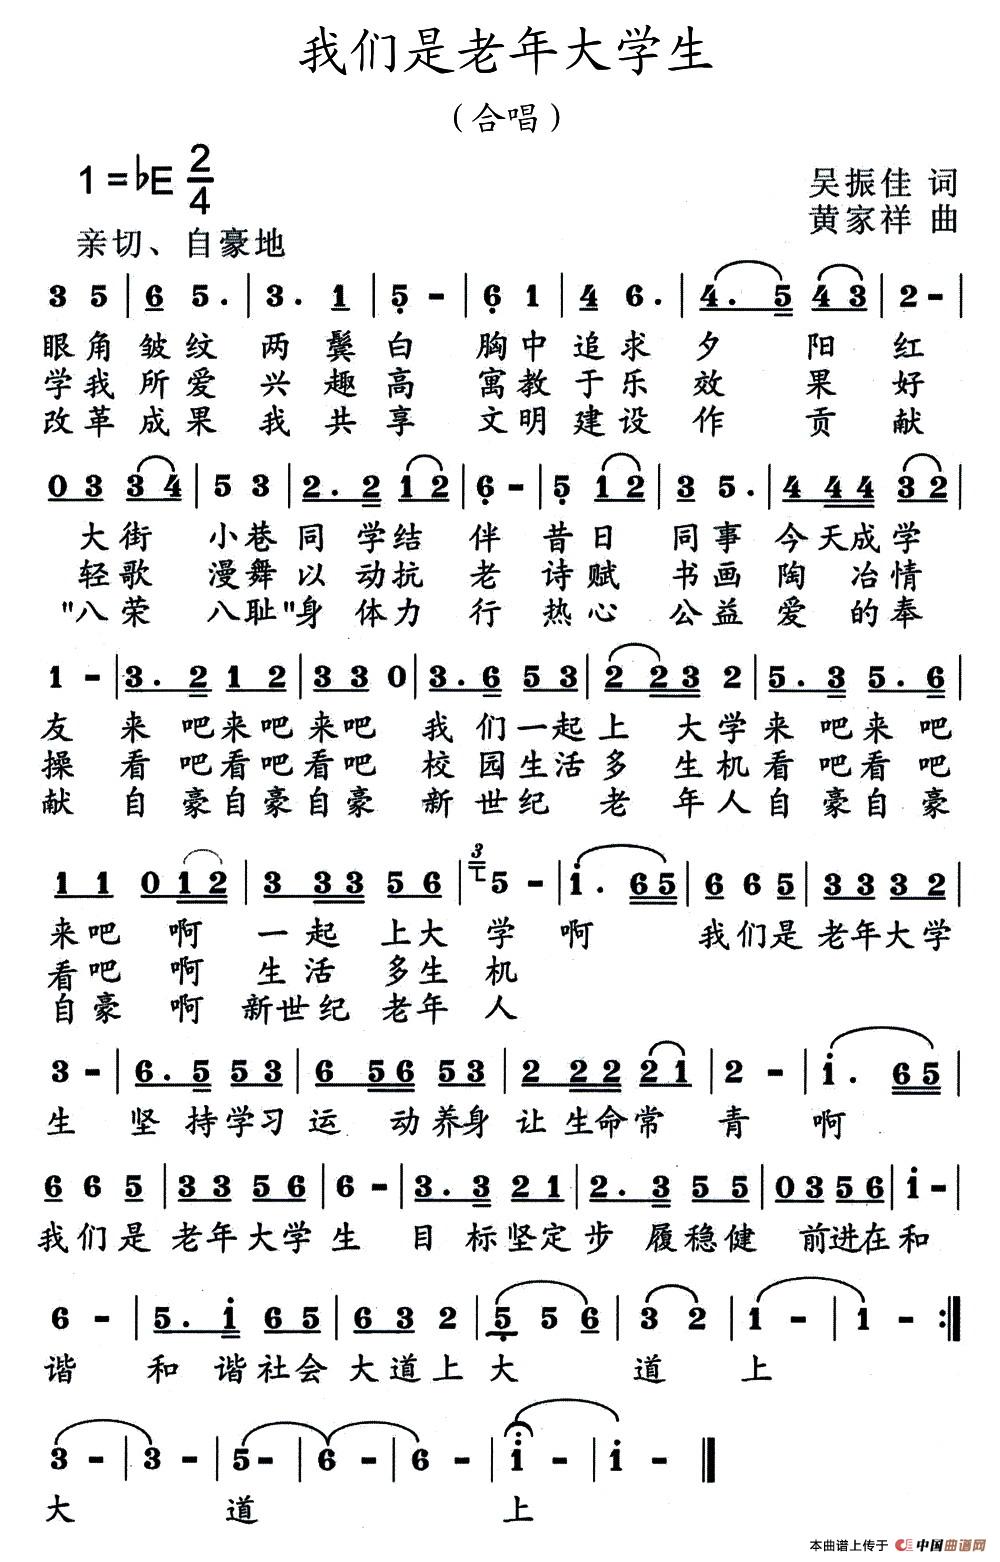 我们是老年大学生
（合唱）
1=♭E 2/4
吴振佳 词
黄家祥 曲
亲切、自豪地
3 5 | 6 5. | 3. 1 | 5 - | 6 1 | 4 6. | 4. 5 4 3 | 2 - |
眼角 皱纹 两 鬓 白 胸中 追求 夕 阳 红
学我 所爱 兴 趣 高 寓教 于乐 效 果 好
改革 成果 我 共 享 文明 建设 作 贡 献
0 3 3 4 | 5 3 | 2. 2 1 2 | 6 - | 5 1 2 | 3 5. | 4 4 4 3 2 |
大街 小巷 同 学结 伴 昔日 同事 今天成学
轻歌 漫舞 以动抗 老 诗赋 书画 陶 冶情
"八荣 八耻"身 体力 行 热心 公益 爱 的奉
1 - | 3. 2 1 2 | 3 3 0 | 3. 6 5 3 | 2 2 3 2 | 5. 3 5. 6 |
友 来 吧来吧来吧 我 们一起上 大学来 吧来 吧
操 看 吧看吧看吧 校 园生活多 生机看 吧看 吧
献 自 豪自豪自豪 新 世纪 老 年人自 豪自 豪
1 1 0 1 2 | 3 3 3 5 6 | 3 5 - | i. 6 5 | 6 6 5 | 3 3 3 2 |
来吧 啊 一 起 上大 学 啊 我们是 老年大学
看吧 啊 生 活 多生 机
自豪 啊 新世纪 老年 人
3 - | 6. 5 5 3 | 6 5 6 5 3 | 2 2 2 2 1 | 2 - | i. 6 5 |
生 坚 持学习 运 动养身 让生命常 青 啊
6 6 5 | 3 3 5 6 | 6 - | 3. 3 2 1 | 2. 3 5 5 | 0 3 5 6 | i - |
我们是 老年大学 生 目 标坚定步 履稳健 前进在和
6 - | 5. i 6 5 | 6 3 2 | 5 5 6 | 3 2 | 1 - | 1 - :|
谐 和 谐社会 大道上 大 道 上
3 - | 3 - | 5 - | 6 - | 6 - | i - | i - ||
大 道 上
本曲谱上传于 中国曲谱网